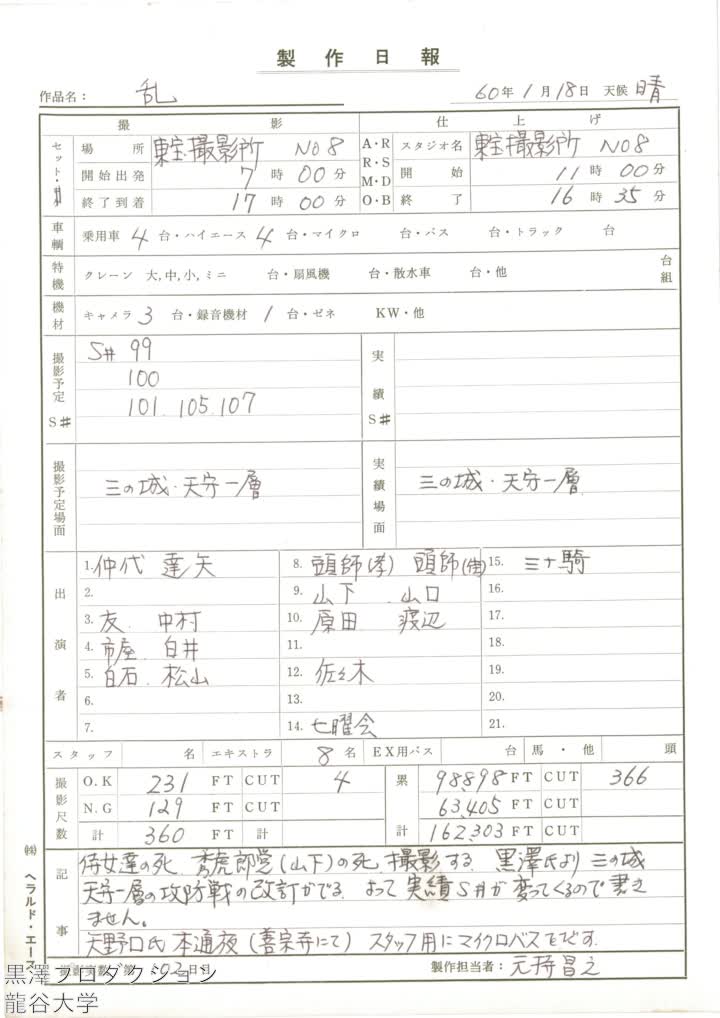 製作日報
作品名： 乱 60年1月18日 天候 晴
撮影 仕上げ
セット・ 場所 東宝撮影所 No8 A・R スタジオ名 東宝撮影所 No8
開始出発 7時00分 R・S M・D 開始 11時00分
終了到着 17時00分 O・B 終了 16時35分
車輌 乗用車 4 台・ハイエース 4 台・マイクロ 台・バス 台・トラック 台
特機 クレーン 大,中,小,ミニ 台・扇風機 台・散水車 台・他 台組
機材 キャメラ 3 台・録音機材 1 台・ゼネ KW・他
撮影予定 S# S# 99 実績 S#
100
101. 105. 107
撮影予定場面 三の城・天守一層 実績場面 三の城・天守一層
出演者
1. 仲代 達矢 8. 頭師(孝) 頭師(佳) 15. 三十騎
2. 9. 山下 山口 16.
3. 友. 中村 10. 原田 渡辺 17.
4. 市屋. 白井 11. 18.
5. 白石. 松山 12. 佐々木 19.
6. 13. 20.
7. 14. 七曜会 21.
スタッフ 名 エキストラ 8名 EX用バス 台 馬・他 頭
撮影尺数 O.K 231 FT CUT 4 累計 98898 FT CUT 366
N.G 129 FT CUT 63,405 FT CUT
計 360 FT 計 162,303 FT CUT
記事 侍女達の死、秀虎郎党(山下)の死、撮影する。黒澤氏より三の城
天守一層の攻防戦の改訂がでる。よって実績S#が変ってくるので書き
ません。
矢野口氏本通夜(善宗寺にて) スタッフ用にマイクロバスをだす.
撮影実数 第 102日目 製作担当者： 元持昌之
㈱ ヘラルド・エース
黒澤プロダクション
龍谷大学